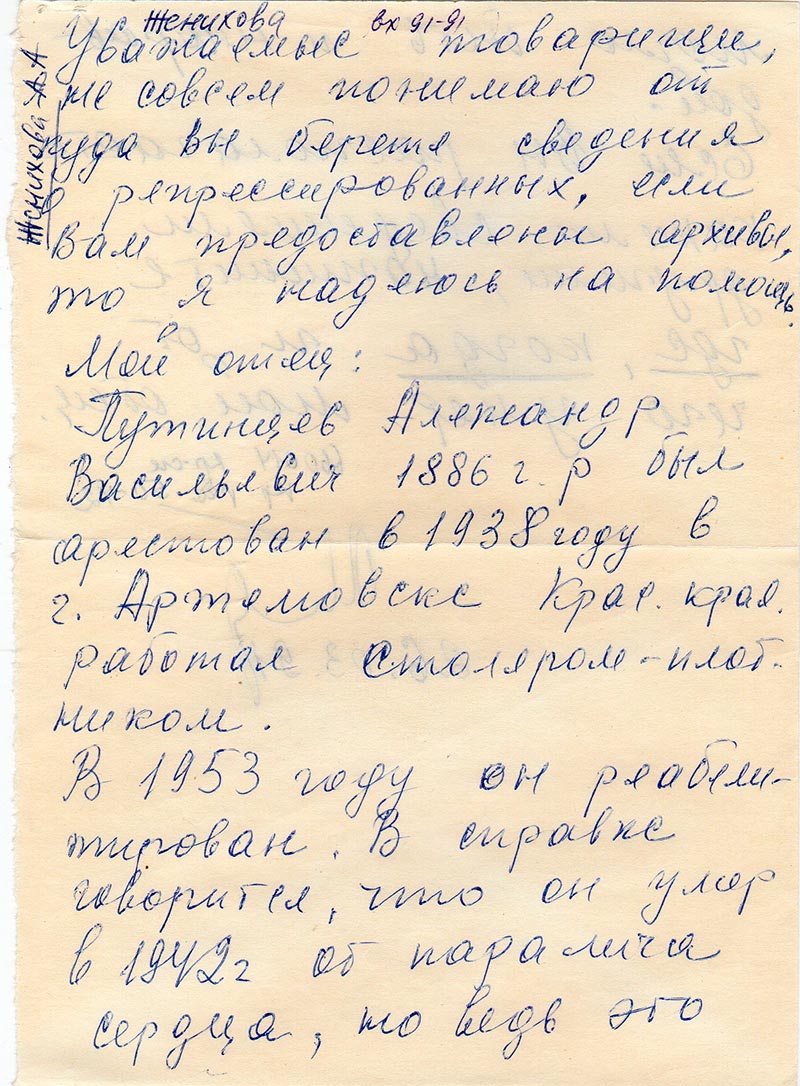 Женихова вх 91-91
Женихова А.А
Уважаемые товарищи,
не совсем понимаю от
куда вы берете сведения
о репрессированных, если
Вам предоставлены архивы,
то я надеюсь на помощь.
Мой отец:
Путинцев Александр
Васильевич 1886 г. р был
арестован в 1938 году в
г. Артемовске Крас. края.
работал столяром-плот-
ником.
В 1953 году он реабели-
тирован. В справке
говорится, что он умер
в 1942 г от паралича
сердца, но ведь это